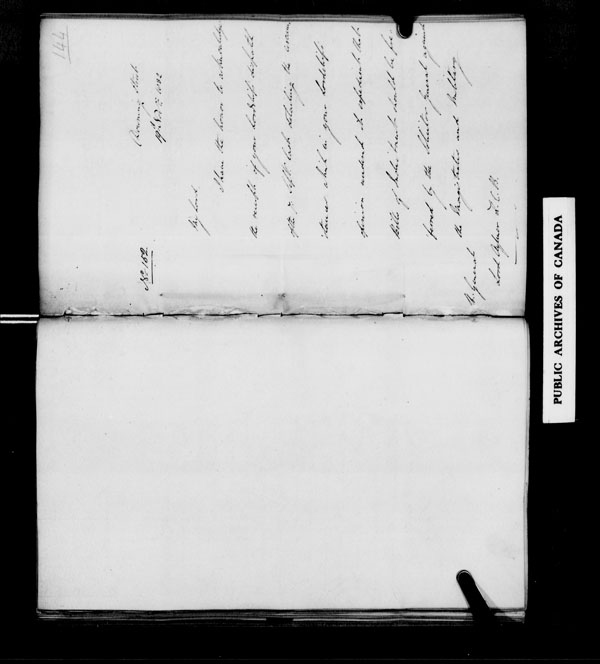 144
Downing Street
My Lord
I have the honor to acknowledge
the receipt of your Lordship's despatch
of the 7 Septr last detailing the circum
stances which in your Lordship's
opinion rendered it expedient that
Bills of Indictment should be pre
ferred by the Solicitor General against
the Magistrates and Military
No. 152.
Lt General
Lord Aylmer K.C.B.
PUBLIC ARCHIVES OF CANADA